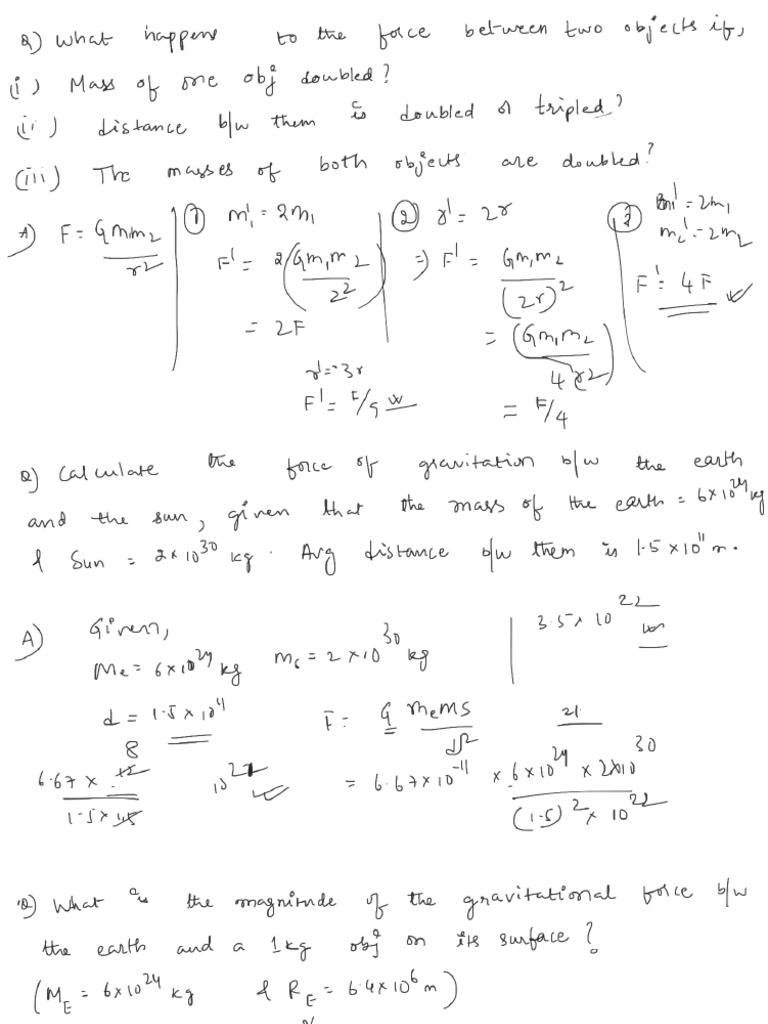 Q) What happens to the force between two objects if,
(i) Mass of one obj doubled?
(ii) distance b/w them is doubled or tripled?
(iii) The masses of both objects are doubled?
A) F = Gm1m2 / r2
① m1' = 2m1
F' = 2(Gm1m2 / 22)
= 2F
② r' = 2r
⇒ F' = Gm1m2 / (2r)2
= (Gm1m2 / 4r2)
= F/4
r' = 3r
F' = F/9
③ m1' = 2m1
m2' = 2m2
F' = 4F
Q) Calculate the force of gravitation b/w the earth
and the sun, given that the mass of the earth = 6×10^24 kg
& Sun = 2×10^30 kg. Avg distance b/w them is 1.5×10^11 m.
A) Given,
Me = 6×10^24 kg ms = 2×10^30 kg
3.5×10^22
d = 1.5×10^11
F = G MeMS / d2
= 6.67×10^-11 × 6×10^24 × 2×10^30 / (1.5)^2 × 10^22
21
6.67 × 12 8 / 1.5×1.5
10^22
Q) What is the magnitude of the gravitational force b/w
the earth and a 1kg obj on its surface?
(ME = 6×10^24 kg & RE = 6.4×10^6 m)